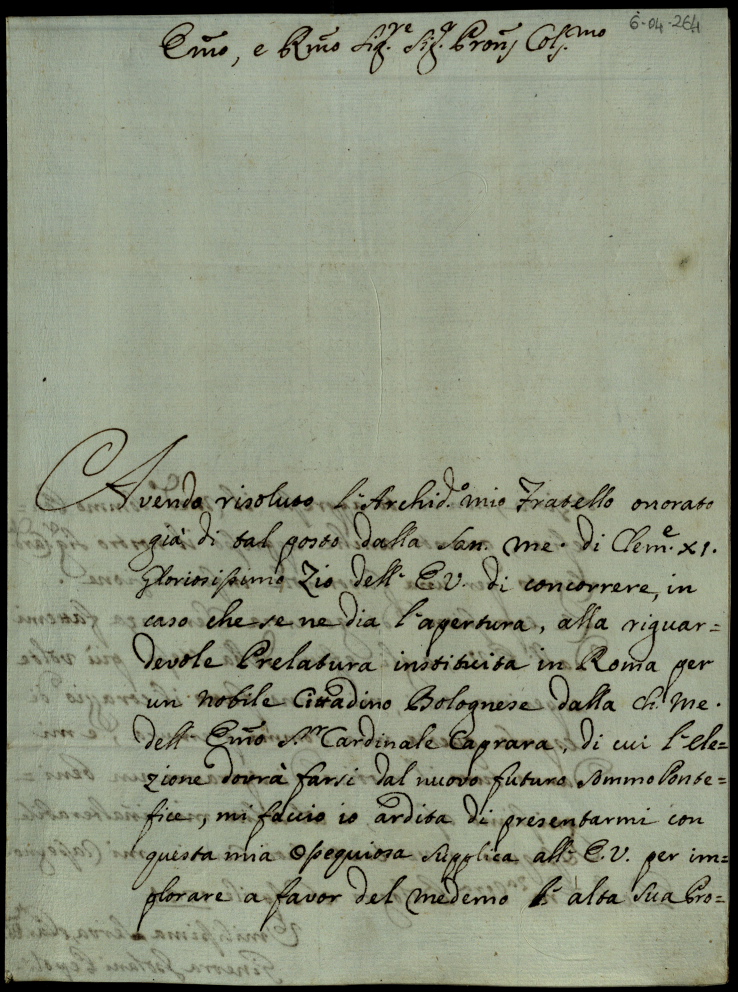 6-04-264
Em̃o, e Rm̃o Sig.re Sig.r Pron̄ Col.mo
Avendo risoluto l'Archid.o mio Fratello onorato
già di tal posto dalla San. Me. di Clem.e XI.
Gloriosissimo Zio dell'E.V. di concorrere, in
caso che se ne dia l'apertura, alla riguar=
devole Prelatura instituita in Roma per
un Nobile Cittadino Bolognese dalla Ch. Me.
dell'Em̃o S.r Cardinale Caprara, di cui l'ele=
zione dovrà farsi dal nuovo futuro Sommo Ponte=
fice, mi faccio io ardita di presentarmi con
questa mia Ossequiosa supplica all'E.V. per im=
plorare a favor del medemo l'alta sua Pro=